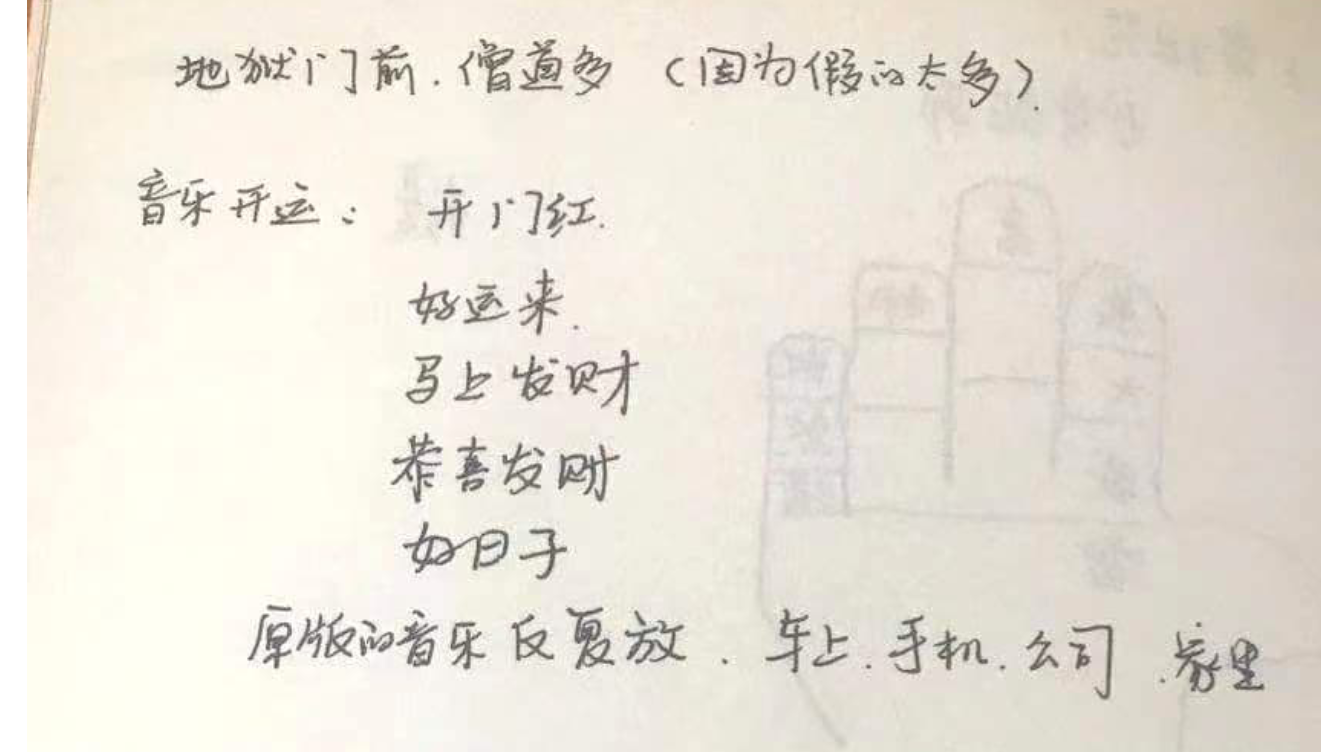 地狱门前.僧道多（因为假的太多）.
音乐开运：开门红.
好运来.
马上发财
恭喜发财
好日子
原版的音乐反复放.车上.手机.公司.家里